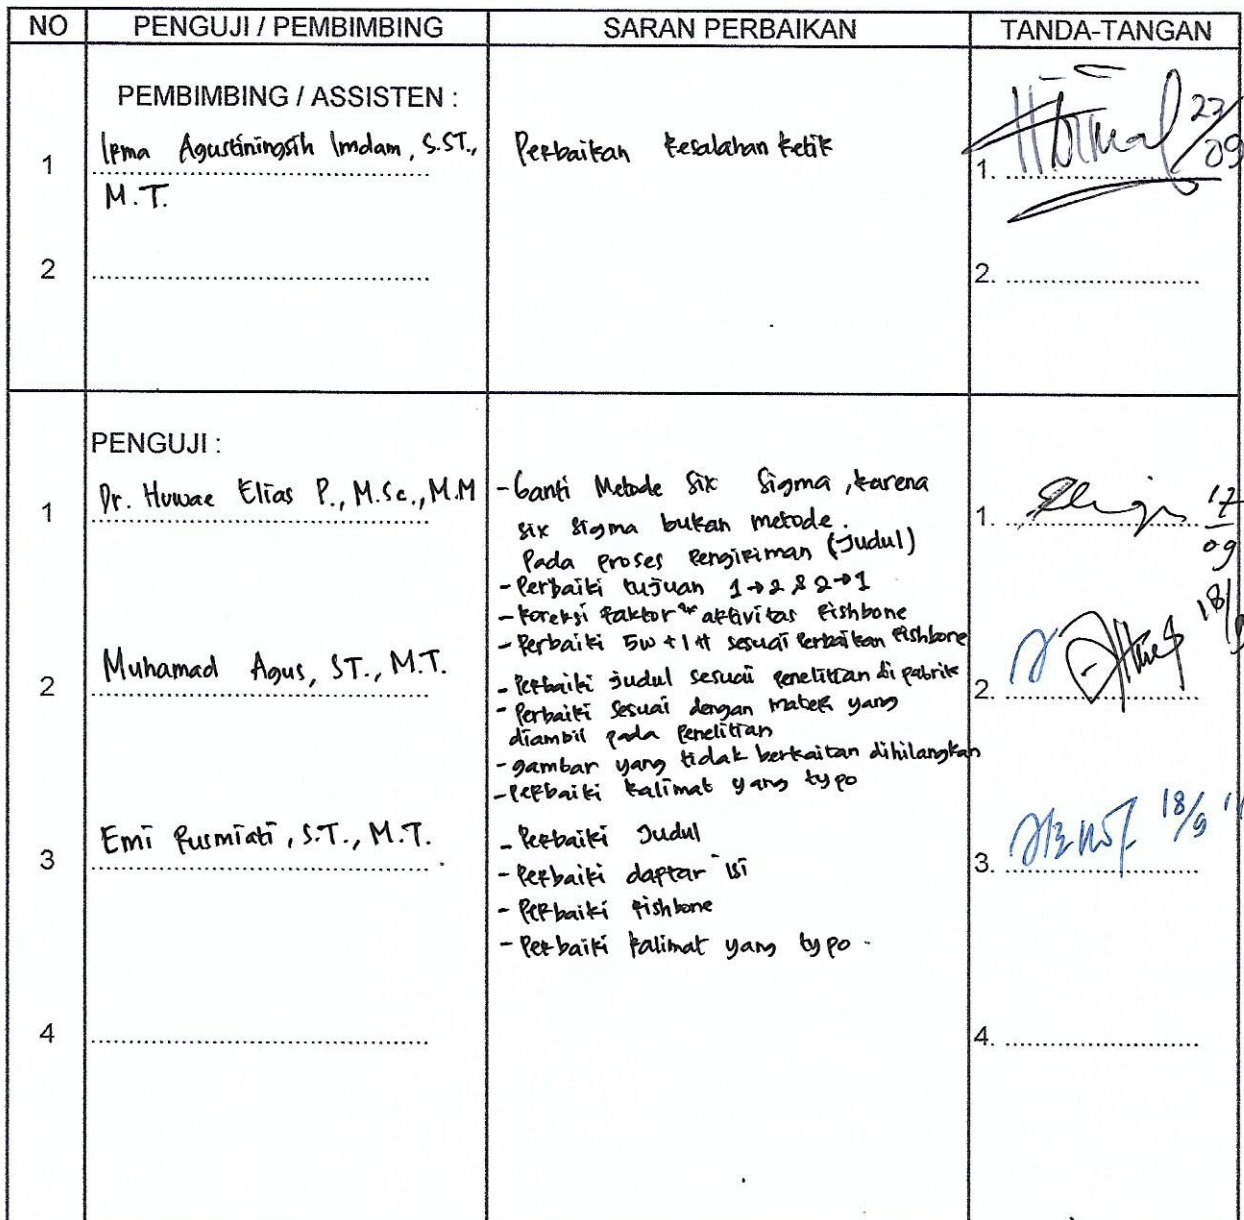 NO PENGUJI / PEMBIMBING SARAN PERBAIKAN TANDA-TANGAN
PEMBIMBING / ASSISTEN :
1 Irma Agustiningsih Imdam, S.ST., Perbaikan kesalahan ketik 1. 23/09
M.T.
2 2.
PENGUJI :
1 Dr. Huwae Elias P., M.Sc., M.M 1. 17/09
- Ganti Metode Six Sigma, karena
six sigma bukan metode.
Pada proses Pengiriman (Judul)
- Perbaiki tujuan 1→2 & 2→1
- Koreksi faktor aktivitas fishbone
- Perbaiki 5w + 1H sesuai Perbaikan fishbone
2 Muhamad Agus, ST., M.T. 2. 18/9
- Perbaiki Judul sesuai penelitian di pabrik
- Perbaiki sesuai dengan materi yang
diambil pada Penelitian
- gambar yang tidak berkaitan dihilangkan
- Perbaiki kalimat yang typo
3 Emi Rusmiati, S.T., M.T. 3. 18/9
- Perbaiki Judul
- Perbaiki daftar isi
- Perbaiki fishbone
- Perbaiki kalimat yang typo.
4 4.